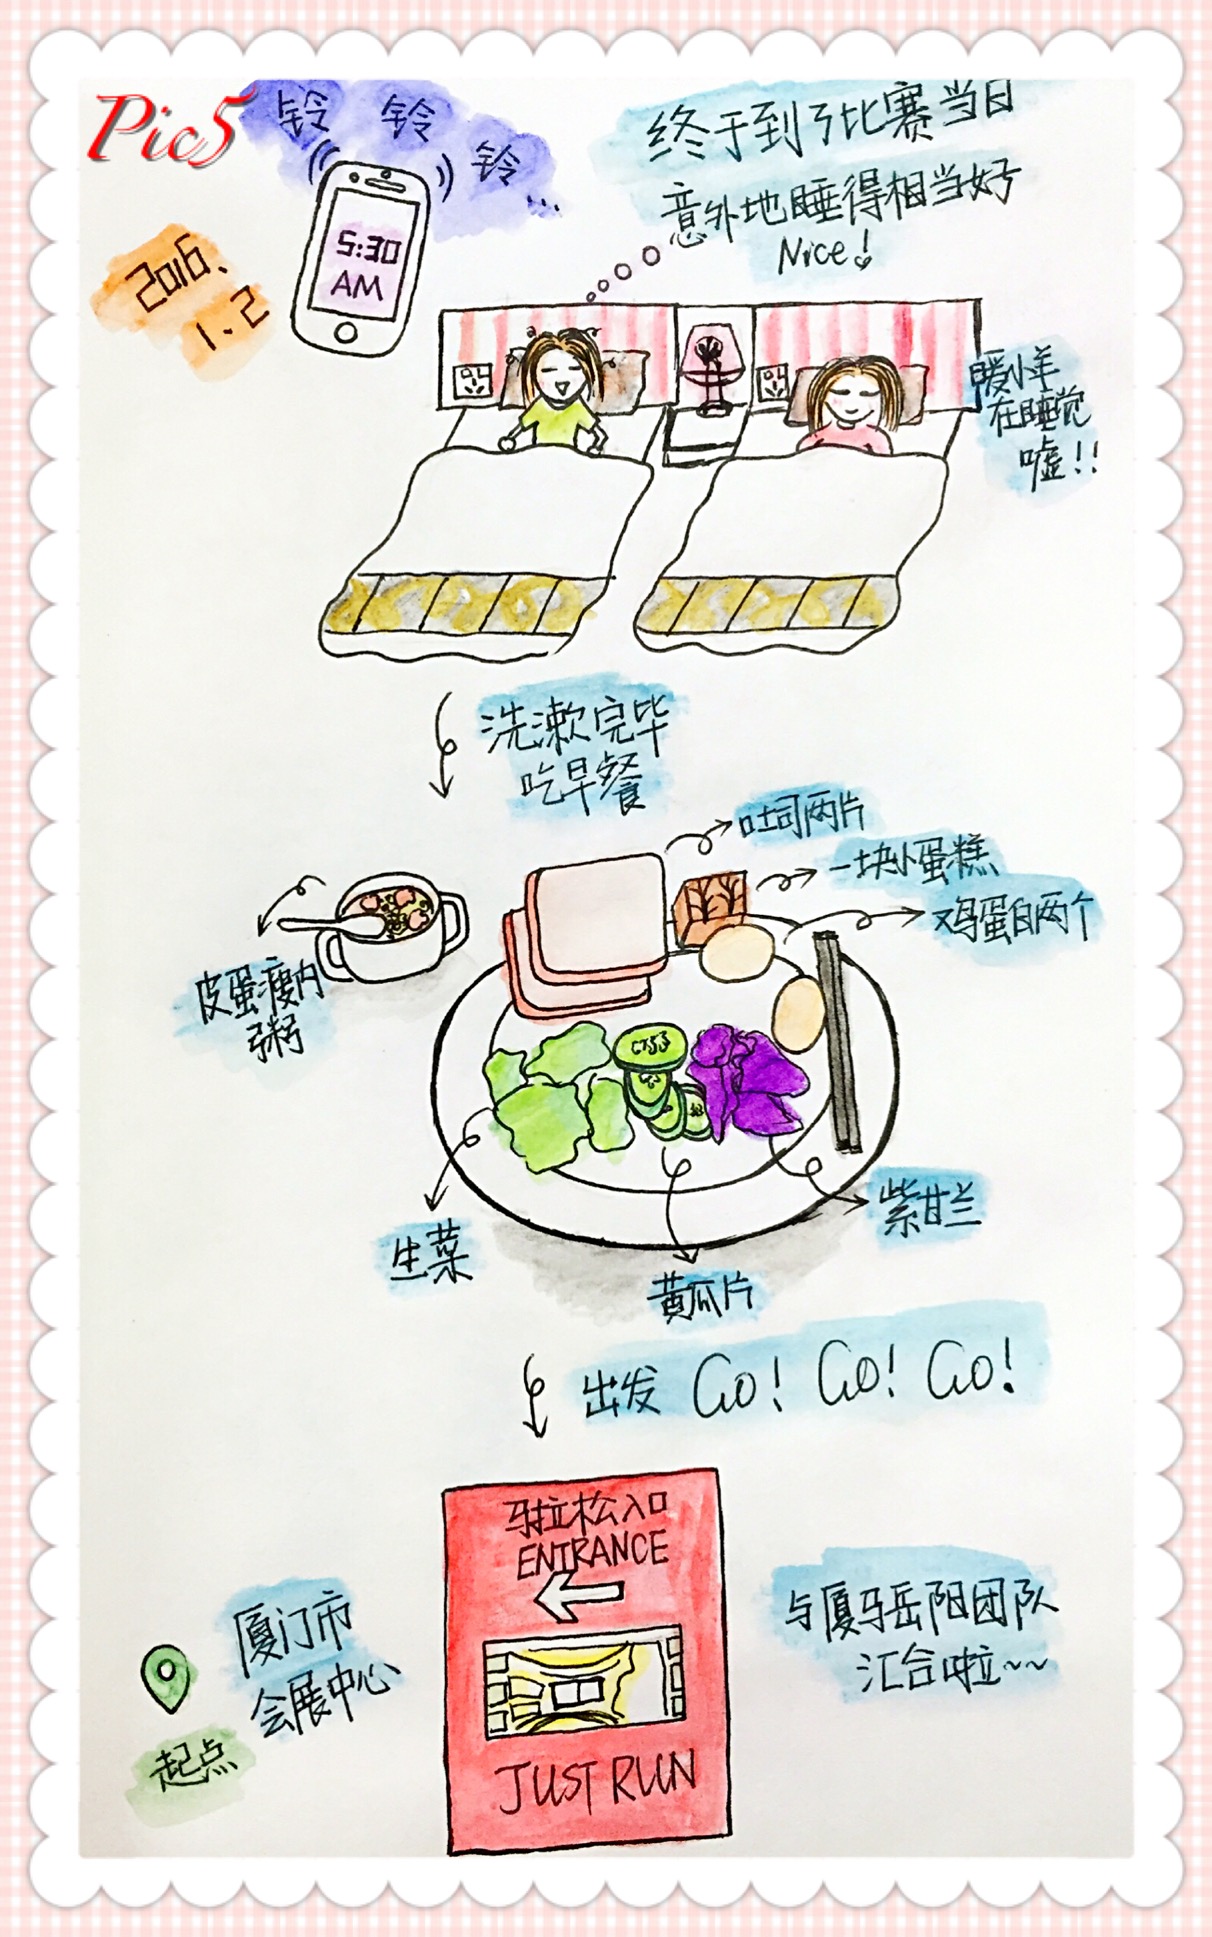 Pic5
铃 铃
铃...
5:30
AM
2016.
1.2
终于到了比赛当日
意外地睡得相当好
Nice!
暖小羊
在睡觉
嘘!!
洗漱完毕
吃早餐
吐司两片
一块小蛋糕
鸡蛋白两个
皮蛋瘦肉
粥
生菜
黄瓜片
紫甘兰
出发 Go! Go! Go!
马拉松入口
ENTRANCE
JUST RUN
厦门市
会展中心
起点
与厦马岳阳团队
汇合啦~~